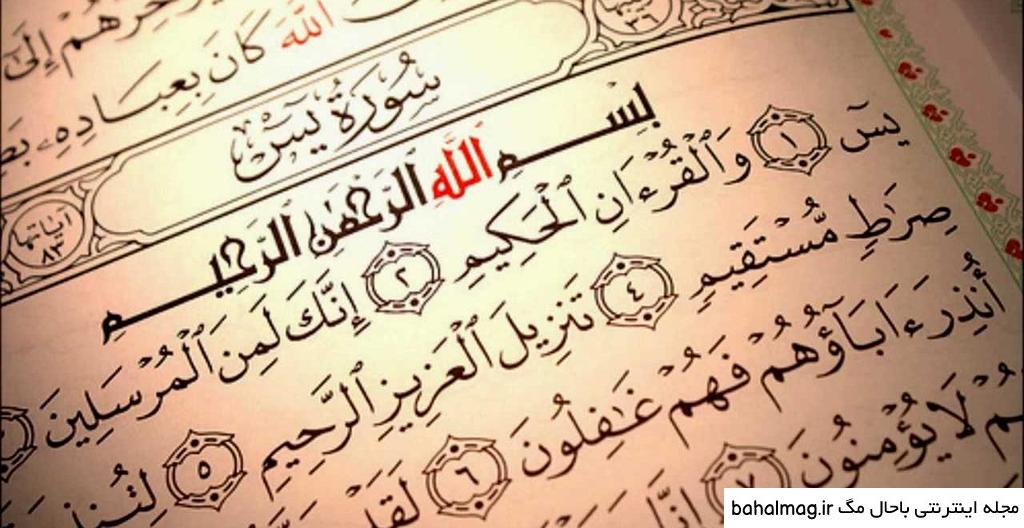 إِلَىٰ
ٱللَّهَ كَانَ بِعِبَادِهِۦ
٣٦
سُورَةُ يسٓ
آياتها ٨٣
بِسْمِ ٱللَّهِ ٱلرَّحْمَٰنِ ٱلرَّحِيمِ
يسٓ ١ وَٱلْقُرْءَانِ ٱلْحَكِيمِ ٢ إِنَّكَ لَمِنَ ٱلْمُرْسَلِينَ
صِرَٰطٍ مُّسْتَقِيمٍ ٤ تَنزِيلَ ٱلْعَزِيزِ ٱلرَّحِيمِ ٥
أُنذِرَ ءَابَآؤُهُمْ فَهُمْ غَٰفِلُونَ ٦
لَا يُؤْمِنُونَ ٧ إِنَّا
مجله اینترنتی باحال مگ bahalmag.ir